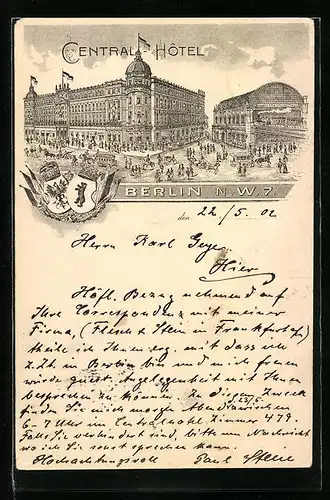 CENTRAL-HÔTEL
BERLIN N.W.7.
den 22./5. 02
Herrn Karl Geye
Hier
Höfl. Bezug nehmend auf
Ihre Correspondenz mit meiner
Firma, (Flesch & Stein in Frankfurt a/M)
theile ich Ihnen erg. mit dass ich
z. Zt. in Berlin bin und mich freuen
würde Angelegenheit mit Ihnen
besprechen zu können. Zu diesem Zweck
finden Sie mich morgen Abend zwischen
6-7 Uhr im Centralhotel Zimmer 479.
Falls Sie verhindert sind, bitte um Nachricht
wo ich Sie sonst sprechen kann.
Hochachtungsvoll Paul Stein